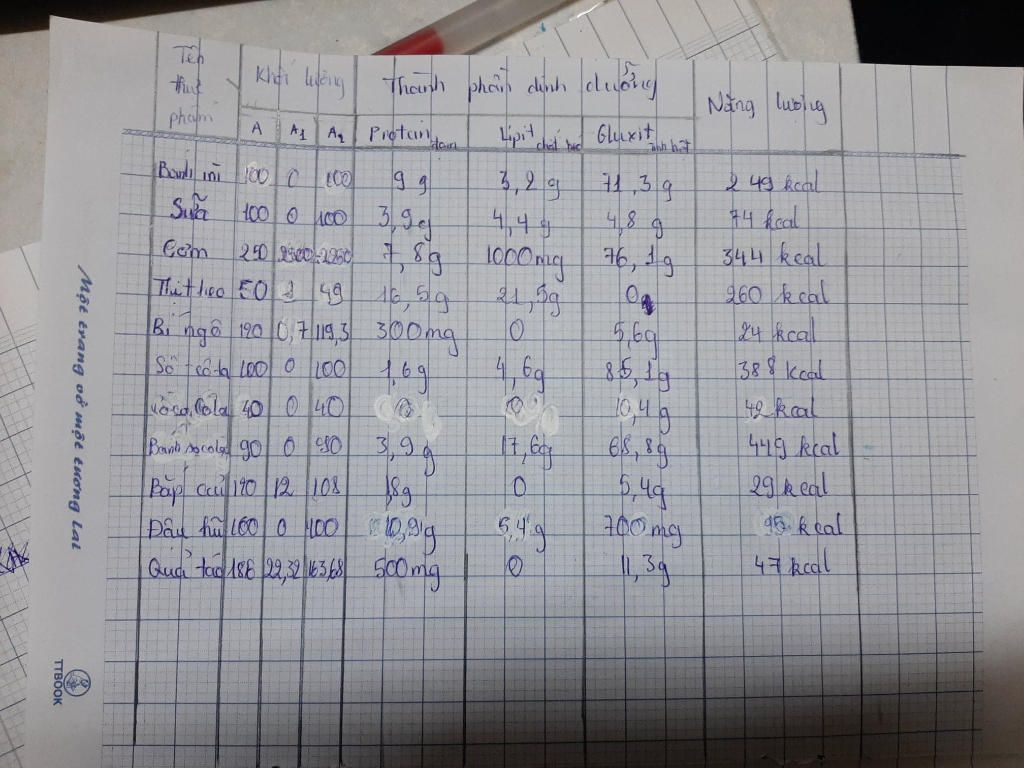 Tên thực phẩm Khối lượng Thành phần dinh dưỡng Năng lượng
A A1 A2 Protein đạm Lipit chất béo Gluxit tinh bột
Bánh mì 100 0 100 9 g 3,2 g 71,3 g 249 kcal
Sữa 100 0 100 3,9g 4,4 g 4,8 g 74 kcal
Cơm 250 7,8g 1000mg 76,1g 344 kcal
Thịt heo 50 1 49 16,5g 21,5g 0g 260 kcal
Bí ngô 120 0,7 119,3 300mg 0 5,6g 24 kcal
Sô cô la 100 0 100 1,6g 4,6g 85,1g 388 kcal
40 0 40 0 0 10,4g 42 kcal
Bánh socola 90 0 90 3,9g 17,6g 68,8g 449 kcal
Bắp cải 120 12 108 1,8g 0 5,4g 29 kcal
Đậu hũ 100 0 100 10,9g 5,4g 700mg 95 kcal
Quả táo 186 22,32 163,68 500mg 0 11,3g 47 kcal
Một trang vở một tương lai
TTBOOK